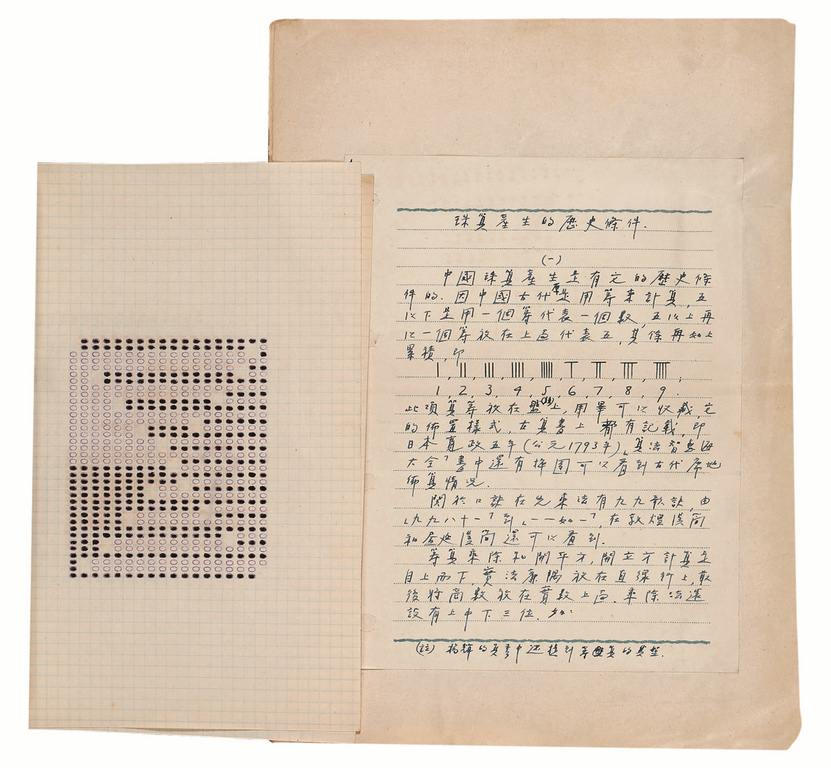 珠算產生的歷史條件.
(一)
中國珠算產生是有它的歷史條
件的. 因中國古代原是用籌來計算, 五
以下是用一個籌代表一個數, 五以上再
以一個籌放在上面代表五, 其條再如上
累積, 即
1, 2, 3, 4, 5, 6, 7, 8, 9.
此項算籌放在盤(註)上, 用畢可以收藏, 它
的佈置樣式, 古算書上都有記載, 即
日本寬政五年(公元1793年), 算法智惠海
大全" 書中還有插圖可以看到古代席地
佈算情況.
關於口訣在先乘法有九九歌訣, 由
"九九八十一" 到 "一一如一", 在敦煌漢簡
和居延漢簡還可以看到.
籌算乘除和開平方, 開立方計算是
自上而下, 實法廉隅放在直線行上, 最
後將商數放在實數上面. 乘除法還
設有上中下三位. 如:
(註) 楊輝的算書中還提到算的算盤.